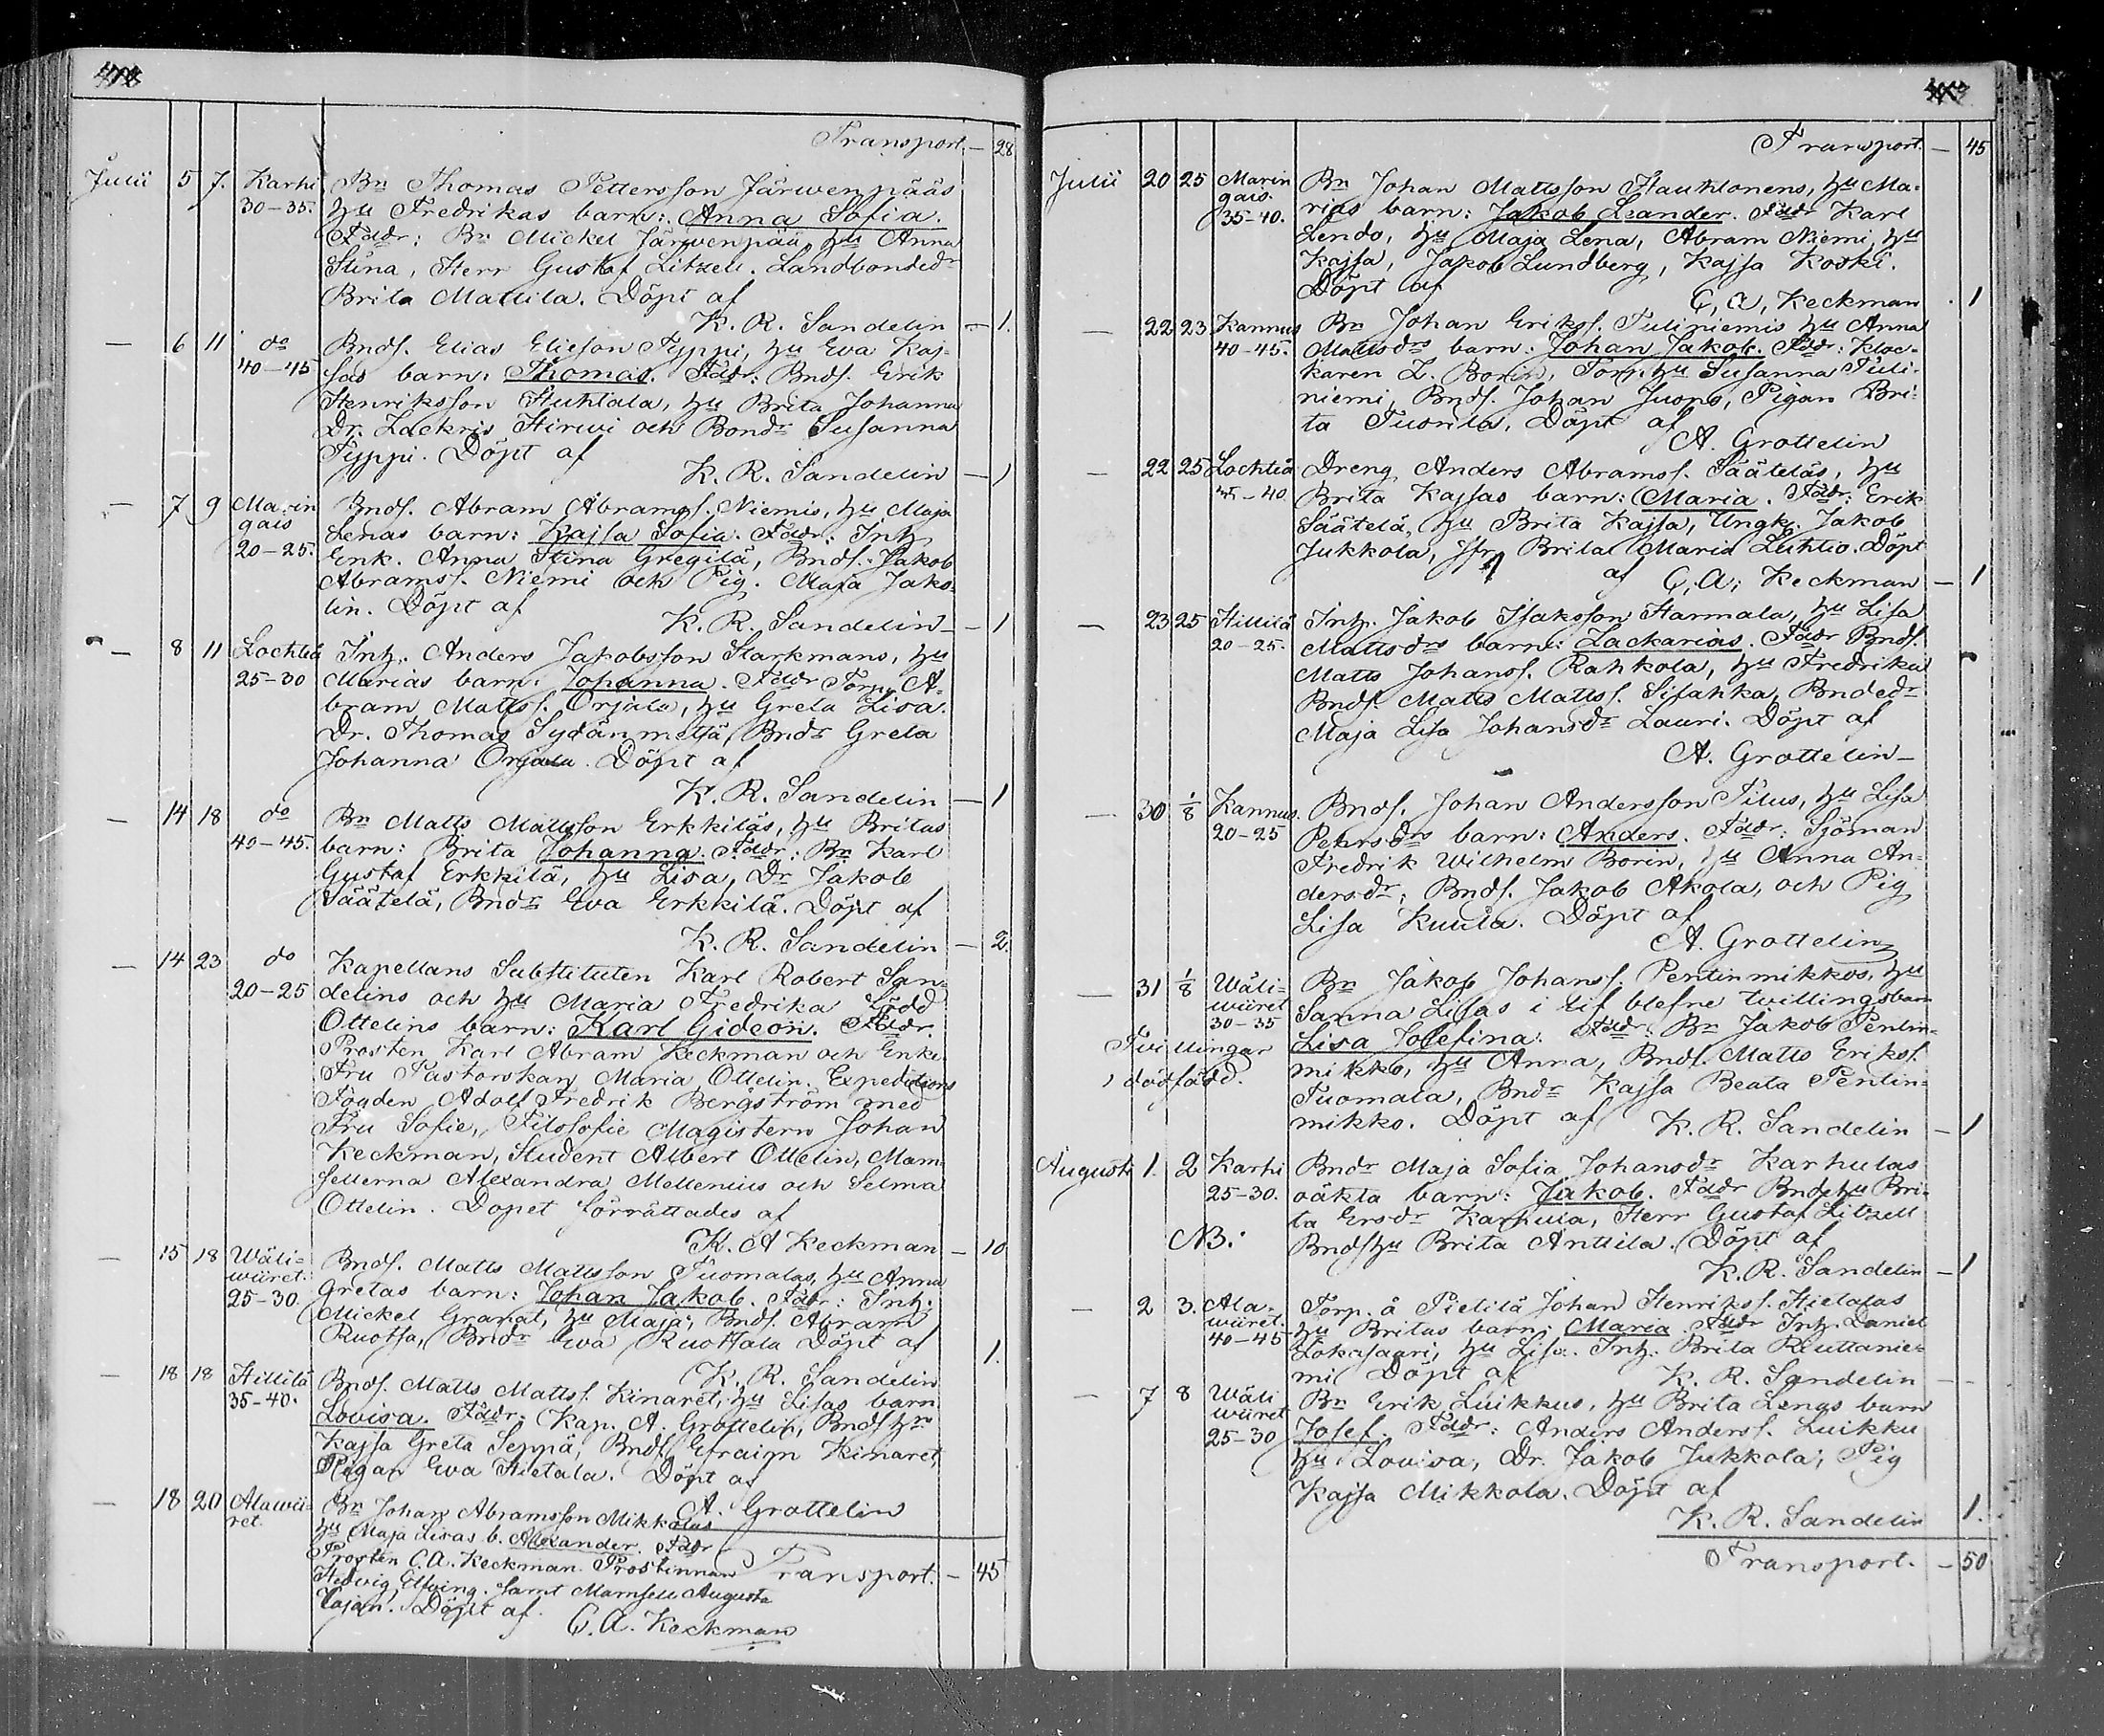 Transport. — 28
Julii 5 7. Karhi Bn Thomas Pettersson Järwenpääs
30-35. hu Fredrikas barn: Anna Sofia.
Fddr: Bn Mickel Järwenpää, hu Anna
Stina, Herr Gustaf Litzell. Landbondedr
Brita Mattila. Döpt af
K. R. Sandelin — 1.
— 6 11 do Bnds. Elias Eliesson Typpi, hu Eva Kaj-
40-45 sas barn: Thomas. Fddr: Bnds. Erik
Henriksson Huhtala, hu Brita Johanna
Dr. Zackris Hirwi och Bondr Susanna
Typpi. Döpt af
K. R. Sandelin — 1
— 7 9 Marin Bnds. Abram Abramss. Niemis, hu Maja
gais Lenas barn: Kajsa Sofia. Fddr: Inh.
20-25. Enk. Anna Stina Gregilä, Bnds. Jakob
Abramss. Niemi och Pig. Maja Jako-
lin. Döpt af
K. R. Sandelin — 1
— 8 11 Lochteå Inh. Anders Jakobsson Starkmans, hu
25-30 Marias barn: Johanna. Fddr Torp. A-
bram Mattss. Orjala, hu Greta Lisa.
Dr. Thomas Sydänmetsä, Bndr Greta
Johanna Orjala. Döpt af
K. R. Sandelin — 1
— 14 18 do Bn Matts Mattsson Erkkiläs, hu Britas
40-45. barn: Brita Johanna. Fddr: Bn Karl
Gustaf Erkkilä, hu Lisa, Dr Jakob
Säätelä, Bndr Eva Erkkilä. Döpt af
K. R. Sandelin — 2.
— 14 23 do Kapellans Substituten Karl Robert San-
20-25 delins och hu Maria Fredrika född
Ottelins barn: Karl Gideon. Fddr.
Prosten Karl Abram Keckman och Enke
Fru Pastorskan Maria Ottelin. Expeditions
Fogden Adolf Fredrik Bergström med
Fru Sofie, Filosofie Magistern Johan
Keckman, Student Albert Ottelin, Mam-
sellerna Alexandra Mellenius och Selma
Ottelin. Dopet förrättades af
K. A Keckman — 10
— 15 18 Wäli- Bnds. Matts Mattsson Tuomalas, hu Anna
wiiret. Gretas barn: Johan Jakob. Fddr: Inh.
25-30. Mickel Granat, hu Maja, Bnds. Abram
Ruotsa, Bndr Eva Ruotsala Döpt af
K. R. Sandelin 1.
— 18 18 Hillilä Bnds. Matts Mattss. Kinaret, hu Lisas barn
35-40. Lovisa. Fddr. Kap. A. Grottelin, Bndshu
Kajsa Greta Seppä, Bnds Efraim Kinaret,
Pigan Eva Hietala. Döpt af
A. Grottelin
— 18 20 Alawii- Bn Johan Abramsson Mikkolas
ret. hu Maja Lisas b. Alexander. Fddr
Prosten C. A. Keckman Prostinnan
Transport. — 45
Hedvig Elfving. samt Mamsell Augusta
Cajan. Döpt af.
C. A. Keckman
Transport. — 45
Julii 20 25 Marin Bn Johan Mattsson Hauktonens, hu Ma-
gais. rias barn: Jakob Leander. Fddr Karl
35-40. Lendo, hu Maja Lena, Abram Niemi, hu
Kajsa, Jakob Lundberg, Kajsa Koski.
Döpt af
C, A, Keckman . 1
— 22 23 Kannus Bn Johan Erikss. Tuliniemis hu Anna
40-45. Mattsdrs barn: Johan Jakob. Fddr: Kloc-
karen Z. Borin, Torp. hu Susanna Tuli-
niemi, Bnds. Johan Juops, Pigan Bri-
ta Tuorila. Döpt af
A. Grottelin
— 22 25 Lochteå Dreng Anders Abramss. Sääteläs, hu
-40 Brita Kajsas barn: Maria. Fddr: Erik
Säätelä, hu Brita Kajsa, Ungk. Jakob
Jukkola, Jfr Brita Maria Luhtio. Döpt
af C. A; Keckman — 1
— 23 25 Hillilä Inh. Jakob Isaksson Harmala, hu Lisa
20-25. Mattsdrs barn: Zackarias. Fddr Bnds.
Matts Johanss. Rahkola, hu Fredrika
Bnds. Matts Mattss. Sisahka, Bndedr
Maja Lisa Johansdr Lauri. Döpt af
A. Grottelin —
— 30 1/8 Kannus. Bnds. Johan Andersson Tilus, hu Lisa
20-25 Petersdrs barn: Anders. Fddr: Sjöman
Fredrik Wilhelm Borin, hu Anna An-
dersdr, Bnds. Jakob Akola, och Pig
Lisa Kuula. Döpt af
A. Grottelin
— 31 1/8 Wäli- Bn Jakob Johanss. Pentinmikkos, hu
wiiret Sanna Lisas i lif blefne twillingsbarn
30-35 Lisa Josefina. Fddr: Bn Jakob Pentin-
Tvillingar mikko, hu Anna, Bnds. Matts Erikss.
1 dödfödd. Tuomala, Bndr Kajsa Beata Pentin-
mikko. Döpt af K. R. Sandelin — 1
Augusti 1. 2 Karhi Bndr Maja Sofia Johansdr Karhulas
25-30. oäkta barn: Jakob. Fddr Bndshu Bri-
ta Ersdr Karhula, Herr Gustaf Litzell
NB. Bndshu Brita Anttila. Döpt af
K. R. Sandelin — 1
— 2 3. Ala- Torp. å Pietilä Johan Henrikss. Hietalas
wiiret. hu Britas barn: Maria Fddr Inh. Daniel
40-45 Lokasaari, hu Lisa. Inh. Brita Riuttanie-
mi Döpt af K. R. Sandelin —
— 7 8 Wäli Bn Erik Luikkus, hu Brita Lenas barn
wiiret Josef. Fddr: Anders Anderss. Luikku
25-30 hu Lovisa, Dr. Jakob Jukkola, Pig
Kajsa Mikkola. Döpt af
K. R. Sandelin 1.
Transport. — 50